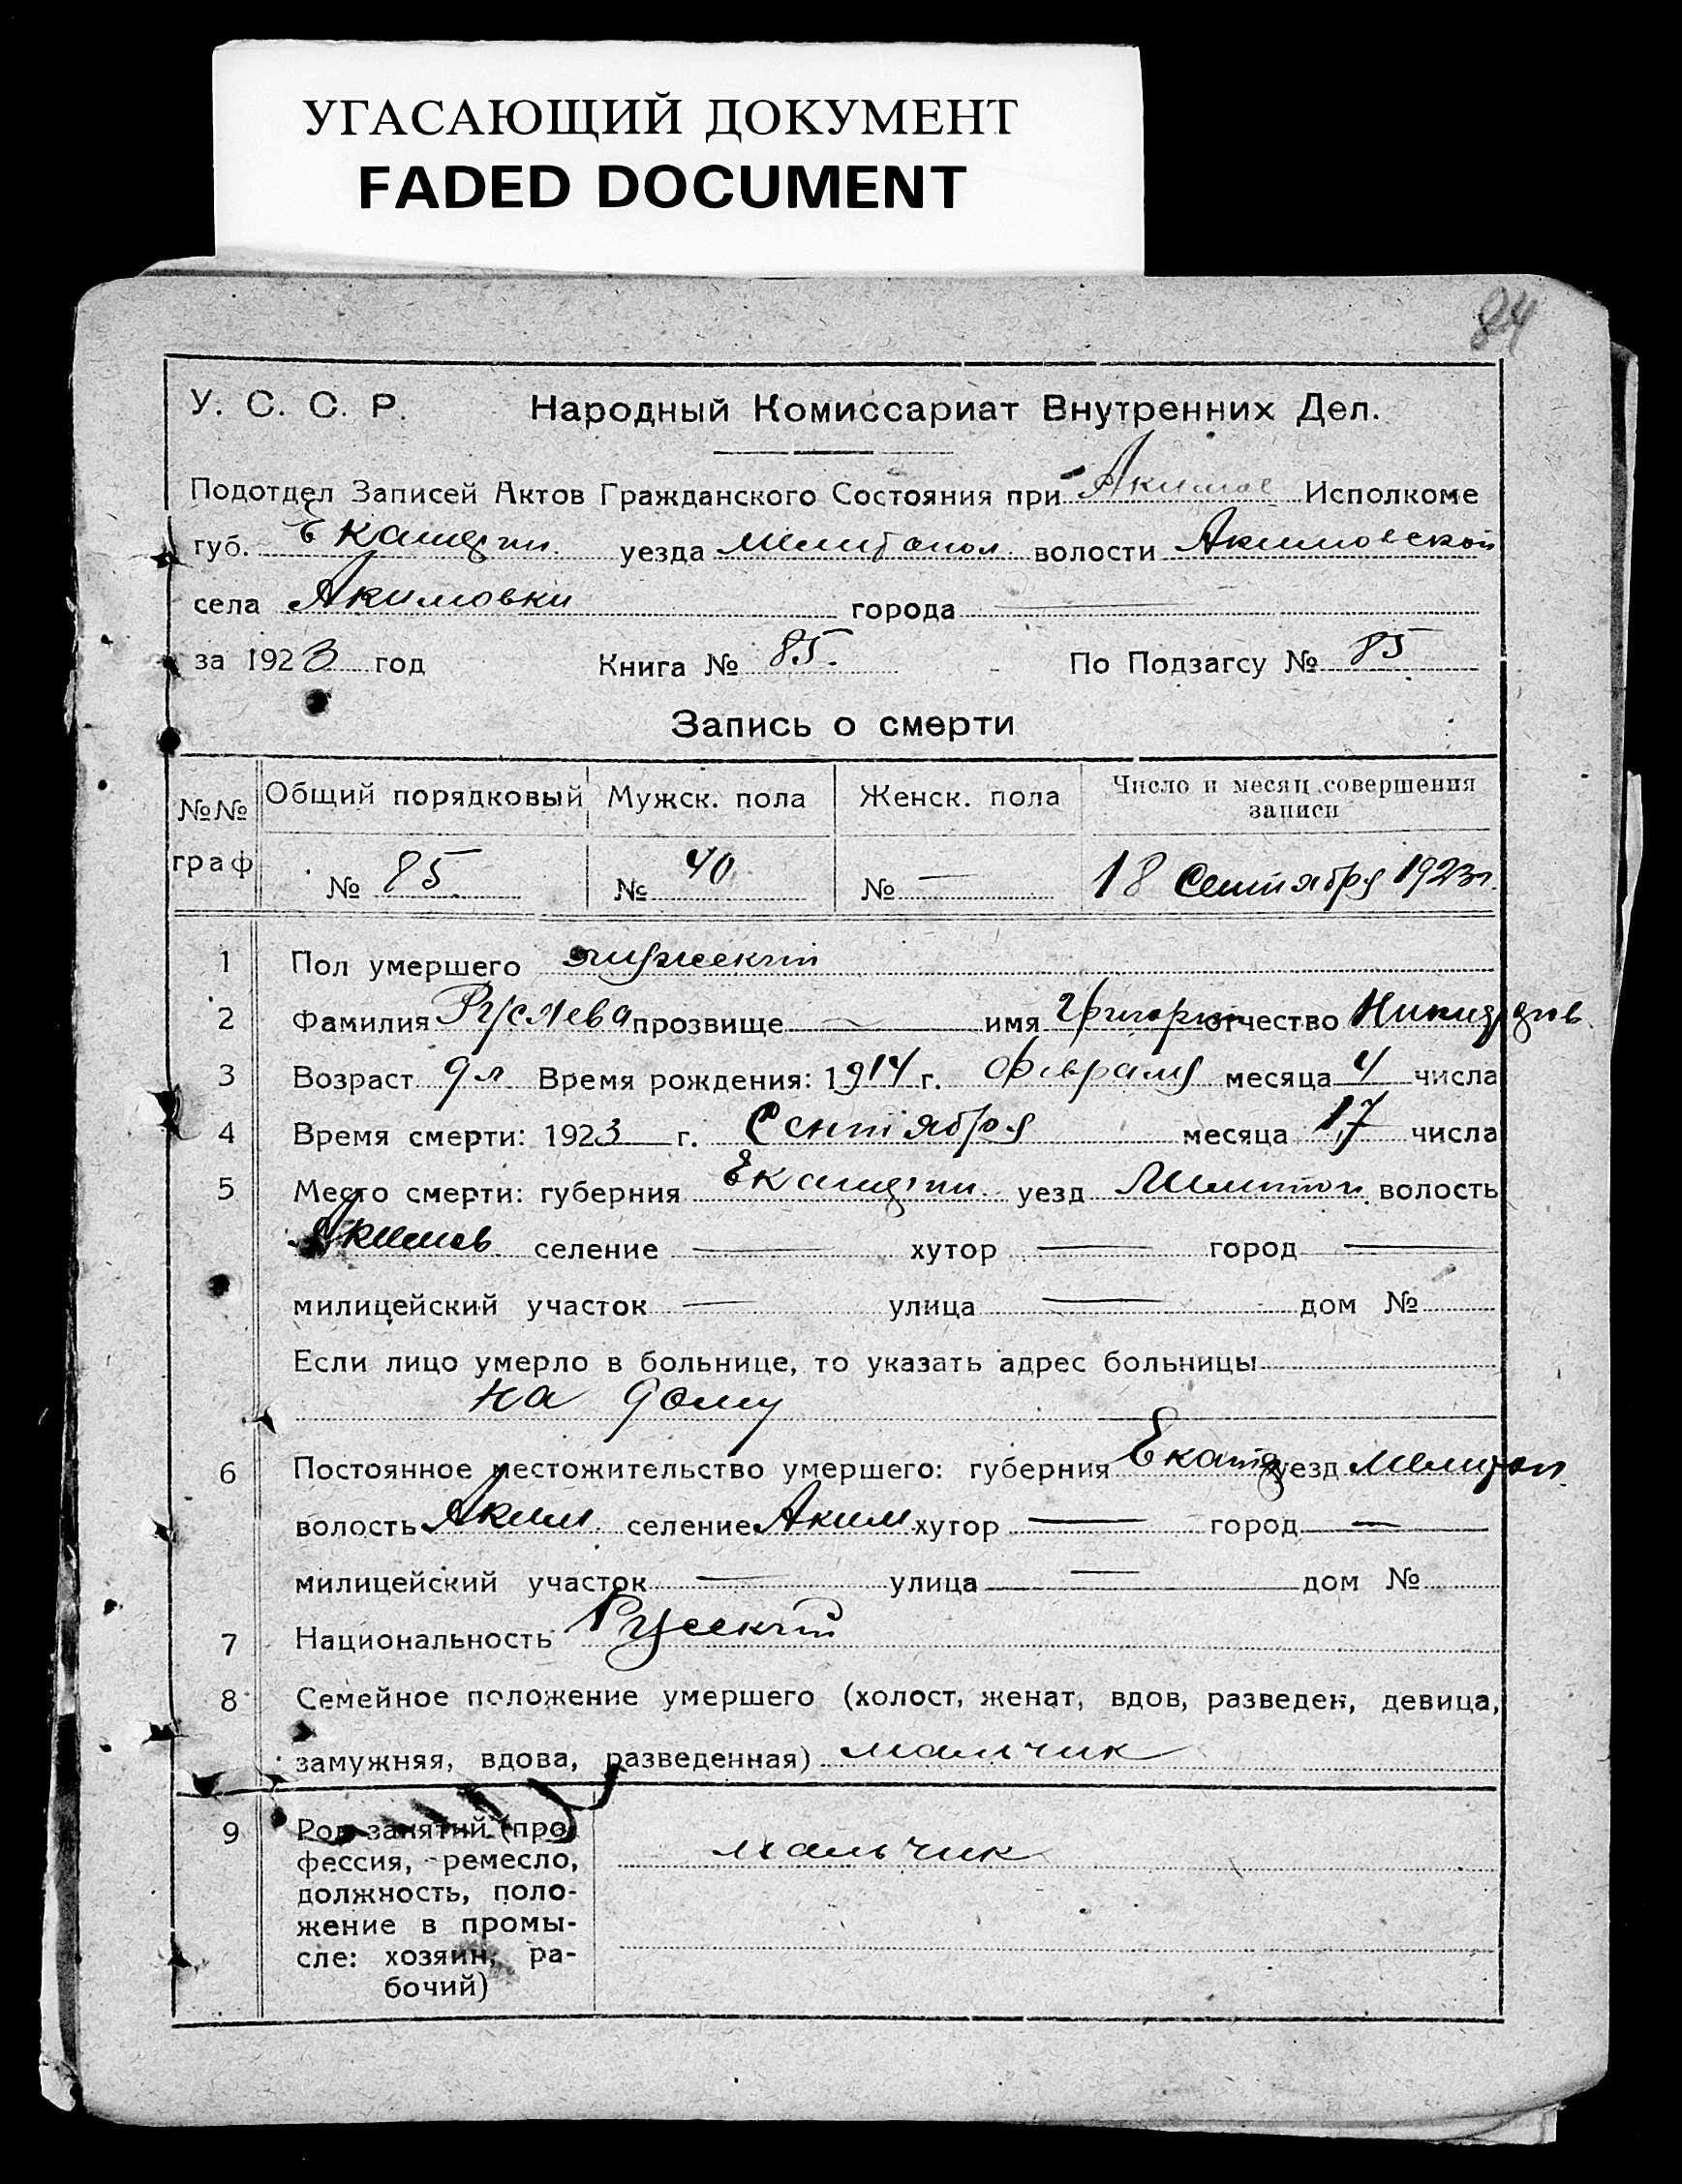 УГАСАЮЩИЙ ДОКУМЕНТ
FADED DOCUMENT
84
У. С. С. Р. Народный Комиссариат Внутренних Дел.
Подотдел Записей Актов Гражданского Состояния при Акимов Исполкоме
губ. Екатерин. уезда Мелитопол. волости Акимовской
села Акимовки города —
за 1923 год Книга № 85. По Подзагсу № 85
Запись о смерти
№№ граф Общий порядковый Мужск. пола Женск. пола Число и месяц совершения записи
№ 85 № 40 № — 18 Сентября 1923 г.
1 Пол умершего мужский
2 Фамилия прозвище — имя Григорий отчество
3 Возраст 9 л Время рождения: 1914 г. Февраля месяца 4 числа
4 Время смерти: 1923 г. Сентября месяца 17 числа
5 Место смерти: губерния Екатерин. уезд Мелитоп. волость
Акимов селение — хутор — город —
милицейский участок — улица — дом №
Если лицо умерло в больнице, то указать адрес больницы
на дому
6 Постоянное местожительство умершего: губерния Екатер уезд Мелитоп.
волость Аким селение Аким хутор — город —
милицейский участок — улица — дом №
7 Национальность Русский
8 Семейное положение умершего (холост, женат, вдов, разведен, девица,
замужняя, вдова, разведенная) мальчик
9 Род занятий (про-
фессия, ремесло, мальчик
должность, поло-
жение в промы-
сле: хозяин, ра-
бочий)